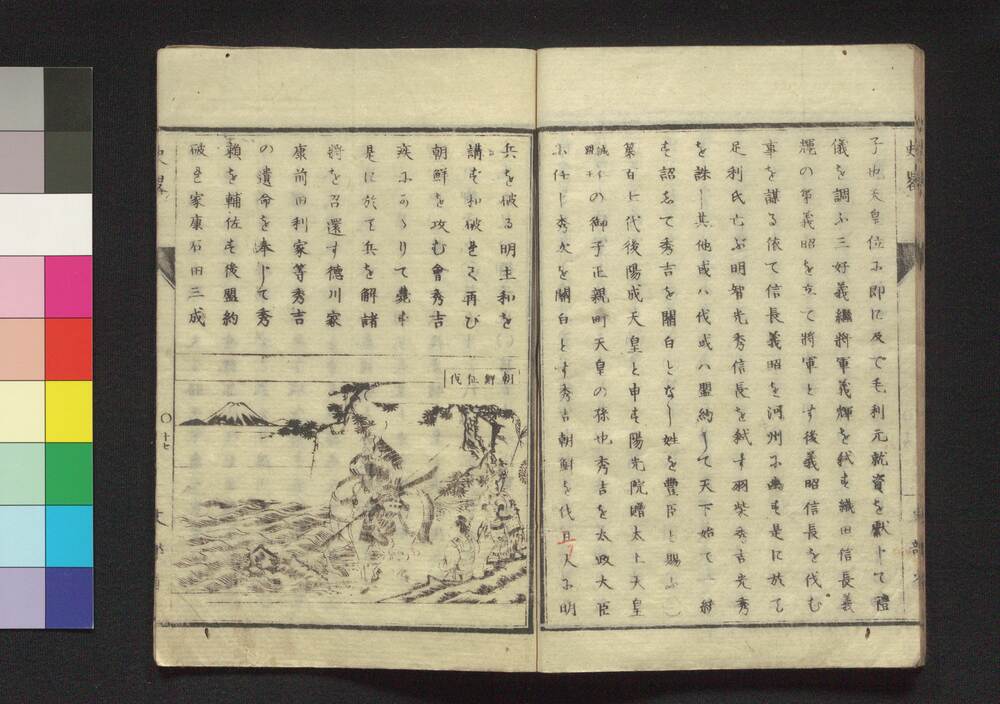 子也天皇位ニ即ニ及て毛利元就資を献して禮
儀を調ふ三好義継將軍義輝を弑す織田信長義
輝の弟義昭を立て將軍とす後義昭信長を伐む
事を謀る依て信長義昭を河州に幽す是に於て
足利氏亡ぶ明智光秀信長を弑す羽柴秀吉光秀
を誅し其他或ハ伐或ハ盟約して天下始て一統
を詔志て秀吉を關白となし姓を豊臣と賜ふ○
第百七代後陽成天皇と申す陽光院贈太上天皇
誠仁の御子正親町天皇の孫也秀吉を太政大臣
に任し秀次を關白とす秀吉朝鮮を伐日人に明
兵を破る明主和を
講す和破きて再び
朝鮮を攻む會秀吉
疾にかゝりて薨す
是に於て兵を解諸
將を召還す徳川家
康前田利家等秀吉
の遺命を奉して秀
頼を輔佐す後盟約
破き家康石田三成
朝鮮征伐
史畧
○十七